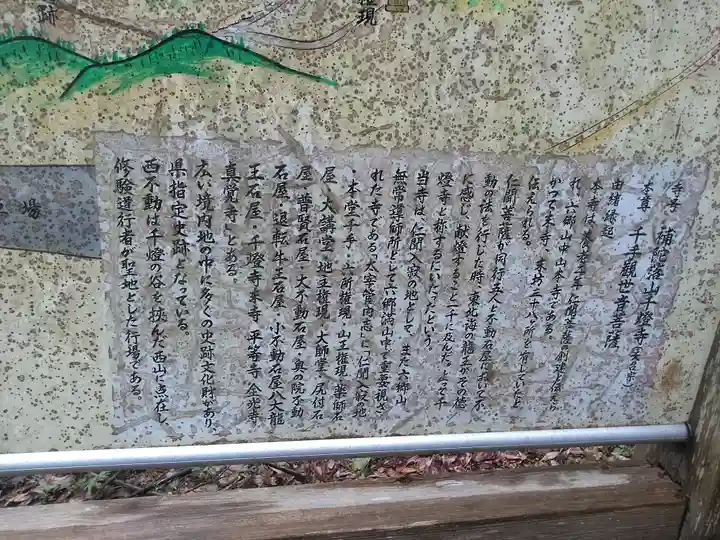 跡
権現
場
寺号 補陀落山千燈寺
本尊 千手観世音菩薩
由緒縁起
本寺は、養老二年、仁聞菩薩の創建と伝えら
れ、六郷山中山本寺である。
かつて末寺、末坊二十八ヶ所を有していたと
伝えられる。
仁聞菩薩が同行五人と不動石屋において不
動の法を行した時、東北海の龍王がその徳
に感じ、献燈すること一千に及んだ。よって千
燈寺と称するにいたったという。
当寺は、仁聞入寂の地として、また六郷山
無常導師所として六郷満山中で重要視さ
れた寺である。「太宰管内志」に「仁聞入寂の地
・本堂千手・六所権現・山王権現・薬師石
屋・大講堂・地主権現・大師堂・尻付石
屋・普賢石屋・大不動石屋・奥の院不動
石屋・退転牛王石屋・小不動石屋八大龍
王石屋・千燈寺末寺 平等寺 金光寺
真覚寺」とある。
広い境内地の中に多くの史跡文化財があり、
県指定史跡となっている。
西不動は千燈の谷を挟んだ西山に点在し、
修験道行者が聖地とした行場である。